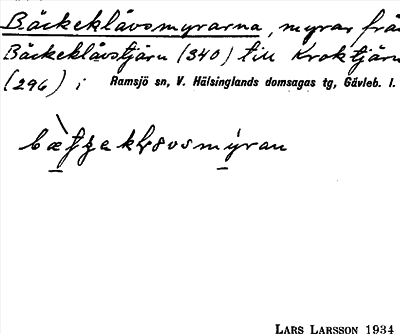 Bäckeklåvsmyrarna, myrar från
Bäckeklåvstjärn (340) till Kroktjärn
(296) i Ramsjö sn, V. Hälsinglands domsagas tg, Gävleb. l.
LARS LARSSON 1934